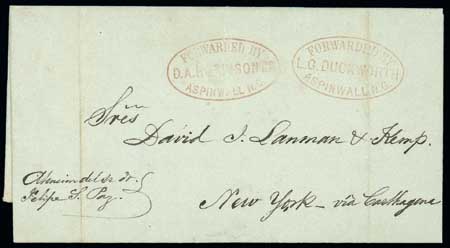 FORWARDED BY
ASPINWALL N.G.
FORWARDED BY
L.G. DUCKWORTH
ASPINWALL N.G.
Sres
David J. Lanman & Kemp.
Atencion del Sr Dr.
Felipe S. Paz.
New York - via Carthagena